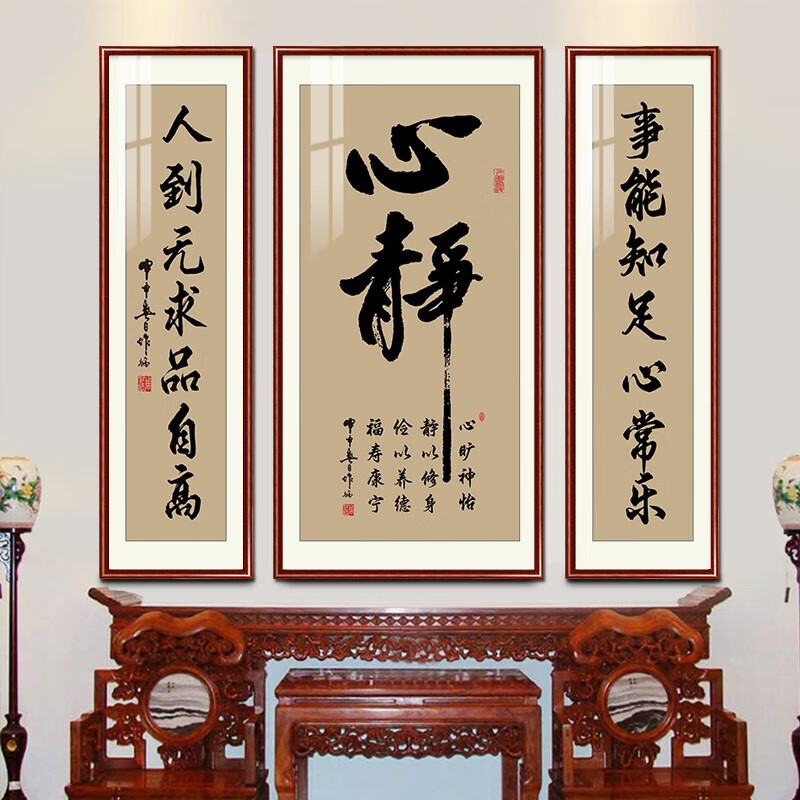 事能知足心常乐
心静
心旷神怡
静以修身
俭以养德
福寿康宁
人到无求品自高